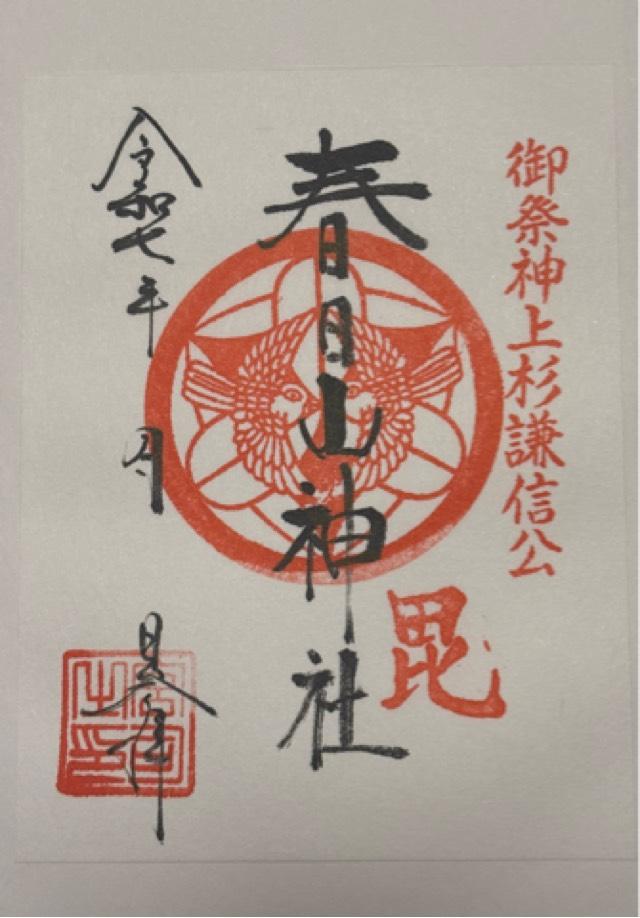 御祭神上杉謙信公
毘
春日山神社
令和七年 月 日奉拝